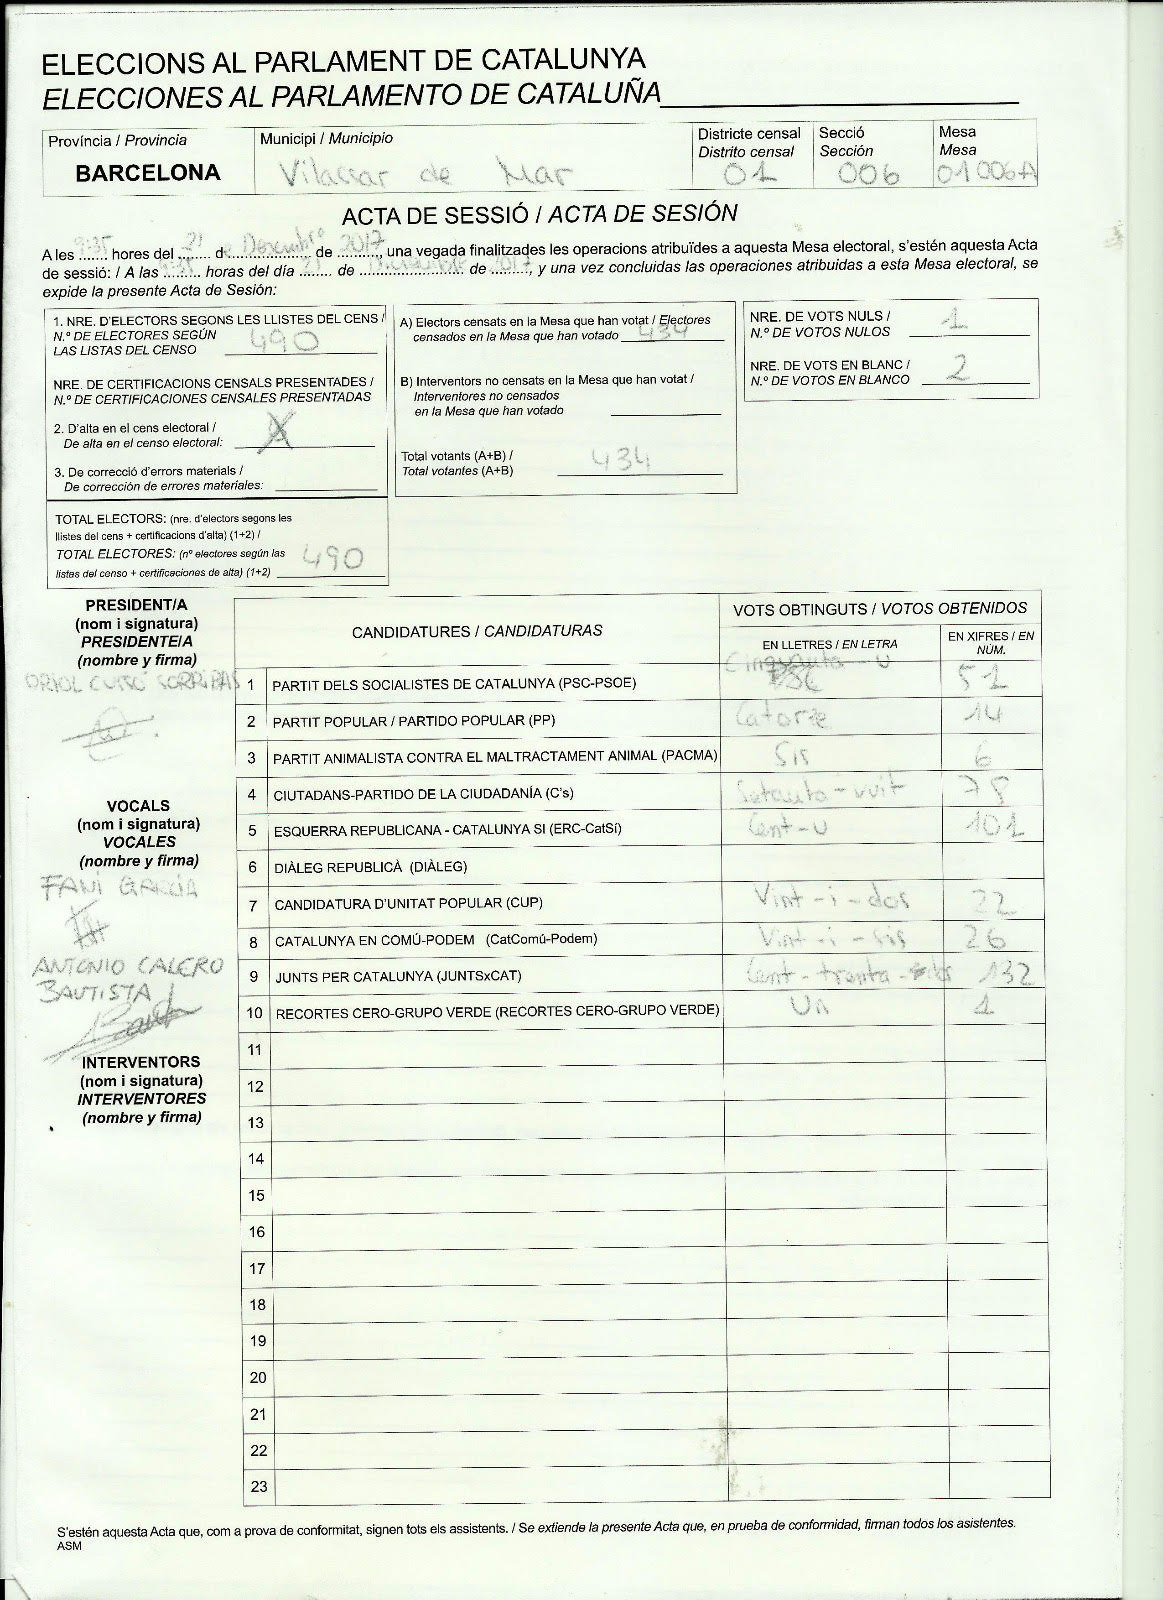 ELECCIONS AL PARLAMENT DE CATALUNYA
ELECCIONES AL PARLAMENTO DE CATALUÑA
Província / Provincia
BARCELONA
Municipi / Municipio
Vilassar de Mar
Districte censal
Distrito censal
01
Secció
Sección
006
Mesa
Mesa
01006A
ACTA DE SESSIÓ / ACTA DE SESIÓN
A les 9:35 hores del 21 de Desembre de 2017, una vegada finalitzades les operacions atribuïdes a aquesta Mesa electoral, s'estén aquesta Acta
de sessió: / A las 9:35 horas del día 21 de Diciembre de 2017, y una vez concluidas las operaciones atribuidas a esta Mesa electoral, se
expide la presente Acta de Sesión:
1. NRE. D'ELECTORS SEGONS LES LLISTES DEL CENS /
N.º DE ELECTORES SEGÚN
LAS LISTAS DEL CENSO 490
NRE. DE CERTIFICACIONS CENSALS PRESENTADES /
N.º DE CERTIFICACIONES CENSALES PRESENTADAS
2. D'alta en el cens electoral /
De alta en el censo electoral:
3. De correcció d'errors materials /
De corrección de errores materiales:
TOTAL ELECTORS: (nre. d'electors segons les
llistes del cens + certificacions d'alta) (1+2) /
TOTAL ELECTORES: (nº electores según las
listas del censo + certificaciones de alta) (1+2) 490
A) Electors censats en la Mesa que han votat / Electores
censados en la Mesa que han votado 434
B) Interventors no censats en la Mesa que han votat /
Interventores no censados
en la Mesa que han votado
Total votants (A+B) /
Total votantes (A+B) 434
NRE. DE VOTS NULS /
N.º DE VOTOS NULOS 1
NRE. DE VOTS EN BLANC /
N.º DE VOTOS EN BLANCO 2
PRESIDENT/A
(nom i signatura)
PRESIDENTE/A
(nombre y firma)
ORIOL CUSÓ SORRIBAS
VOCALS
(nom i signatura)
VOCALES
(nombre y firma)
FANI GARCÍA
ANTONIO CALERO
BAUTISTA
INTERVENTORS
(nom i signatura)
INTERVENTORES
(nombre y firma)
CANDIDATURES / CANDIDATURAS
VOTS OBTINGUTS / VOTOS OBTENIDOS
EN LLETRES / EN LETRA
EN XIFRES / EN
NÚM.
1 PARTIT DELS SOCIALISTES DE CATALUNYA (PSC-PSOE) Cinquanta-u 51
2 PARTIT POPULAR / PARTIDO POPULAR (PP) Catorze 14
3 PARTIT ANIMALISTA CONTRA EL MALTRACTAMENT ANIMAL (PACMA) Sis 6
4 CIUTADANS-PARTIDO DE LA CIUDADANÍA (C's) Setanta-vuit 78
5 ESQUERRA REPUBLICANA - CATALUNYA SI (ERC-CatSí) Cent-u 101
6 DIÀLEG REPUBLICÀ (DIÀLEG)
7 CANDIDATURA D'UNITAT POPULAR (CUP) Vint-i-dos 22
8 CATALUNYA EN COMÚ-PODEM (CatComú-Podem) Vint-i-sis 26
9 JUNTS PER CATALUNYA (JUNTSxCAT) Cent-trenta-dos 132
10 RECORTES CERO-GRUPO VERDE (RECORTES CERO-GRUPO VERDE) Un 1
11
12
13
14
15
16
17
18
19
20
21
22
23
S'estén aquesta Acta que, com a prova de conformitat, signen tots els assistents. / Se extiende la presente Acta que, en prueba de conformidad, firman todos los asistentes.
ASM